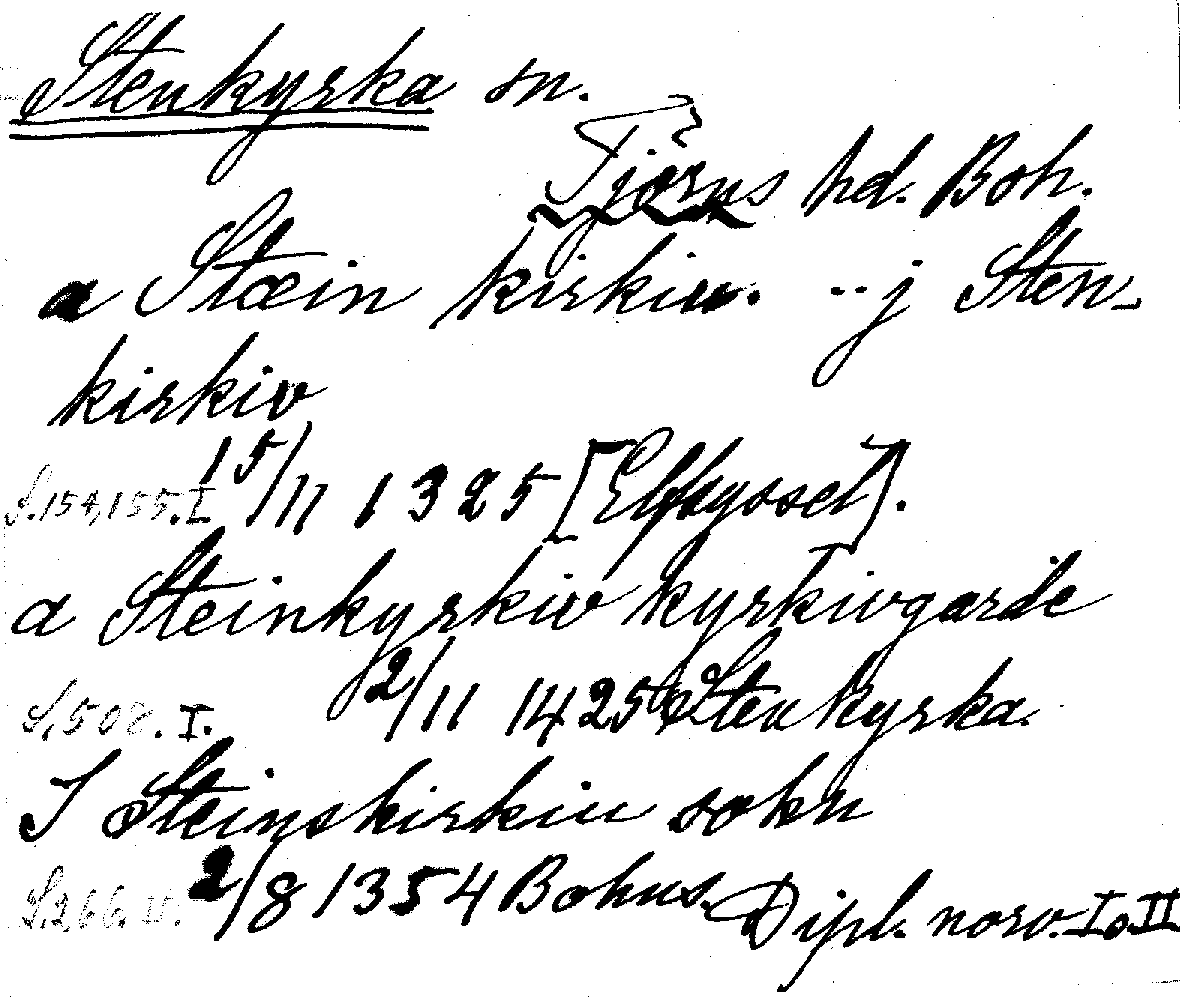 Stenkyrka sn.
Tjörns hd. Boh.
a Stæin kirkiu. ..j Sten-
kirkiv
S.154,155.I 15/11 1325 [Elfkyssel].
a Steinkyrkiv kyrkivgarde
S,508. I. 2/11 1425 Stenkyrka.
I Steinskirkiu sokn
S.266.II. 2/8 1354 Bohus. Dipl. norv. I o. II